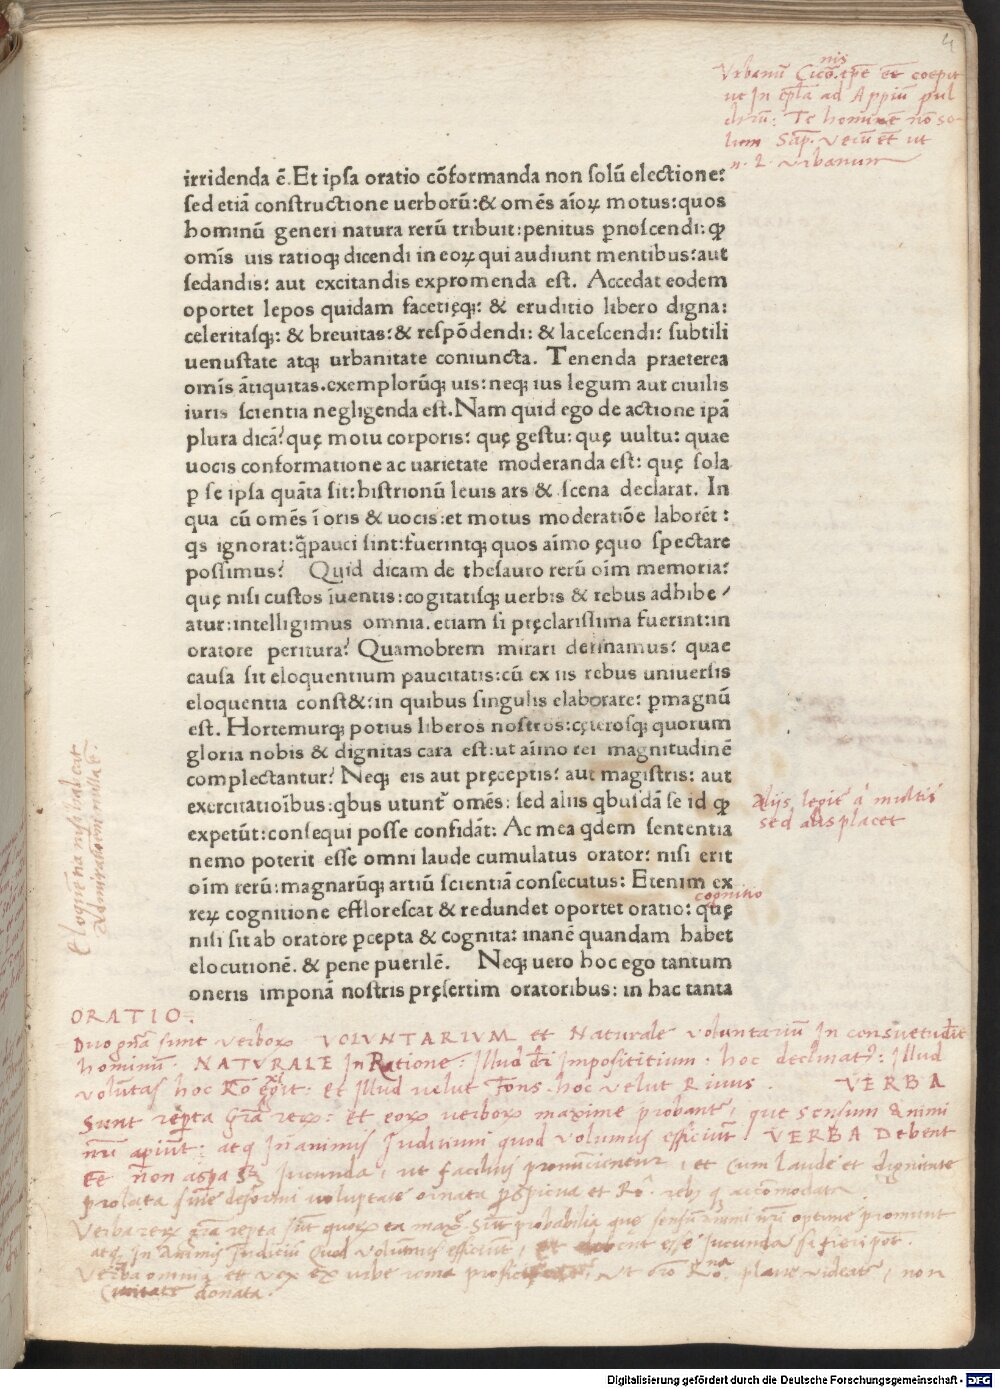 4
Vrbanū Cicō.nis tpē eē coepit
ut In ep̄la ad Appiū pul
chrū: Te hominē nō so-
lum Sap. verū et ut
n. 2. vrbanum
irridenda ē. Et ipſa oratio cōformanda non ſolū electione:
ſed etiā conſtructione uerborū: & omēs aīoꝝ motus: quos
hominū generi natura rerū tribuit: penitus ꝑnoſcendi: ꝙ
omīs uis ratioqꝫ dicendi in eoꝝ qui audiunt mentibus: aut
ſedandis: aut excitandis expromenda eſt. Accedat eodem
oportet lepos quidam facetięqꝫ: & eruditio libero digna:
celeritaſqꝫ: & breuitas: & reſpōdendi: & laceſcendi: ſubtili
uenuſtate atqꝫ urbanitate coniuncta. Tenenda praeterea
omīs ātiquitas. exemplorūqꝫ uis: neqꝫ ius legum aut ciuilis
iuris ſcientia negligenda eſt. Nam quid ego de actione ipā
plura dicā? quę motu corporis: quę geſtu: quę uultu: quae
uocis conformatione ac uarietate moderanda eſt: quę ſola
ꝑ ſe ipſa quāta ſit: hiſtrionū leuis ars & ſcena declarat. In
qua cū omēs ī oris & uocis: et motus moderatiōe laborēt:
q̄s ignorat: q̄pauci ſint: fuerintqꝫ quos aīmo ęquo ſpectare
poſſimus? Quid dicam de theſauro rerū oīm memoria:
quę niſi cuſtos īuentis: cogitatiſqꝫ uerbis & rebus adhibe
atur: intelligimus omnia. etiam ſi pręclariſſima fuerint: in
oratore peritura? Quamobrem mirari deſinamus: quae
cauſa ſit eloquentium paucitatis: cū ex iis rebus uniuerſis
eloquentia conſt&: in quibus ſingulis elaborare: ꝑmagnū
eſt. Hortemurqꝫ potius liberos noſtros: cęteroſqꝫ quorum
gloria nobis & dignitas cara eſt: ut aīmo rei magnitudinē
complectantur? Neqꝫ eis aut pręceptis: aut magiſtris: aut
exercitatioībus: qbus utunt᷑ omēs: ſed aliis qbuſdā ſe id ꝙ
expetūt: conſequi poſſe confidāt: Ac mea qdem ſententia
nemo poterit eſſe omni laude cumulatus orator: niſi erit
oīm rerū: magnarūqꝫ artiū ſcientiā conſecutus: Etenim ex
reꝝ cognitione effloreſcat & redundet oportet oratio: quę
niſi ſit ab oratore ꝑcepta & cognita: inanē quandam habet
elocutionē. & pene puerilē. Neqꝫ uero hoc ego tantum
oneris imponā noſtris pręſertim oratoribus: in hac tanta
Alijs legit̄ a multis
sed alijs placet
cognitio
Eloquētia nisi habeat
admirationē nulla ē.
ORATIO.
Duo gn̄a sunt verboꝝ VOLVNTARIVM et Naturale voluntariū In consuetudīe
hominū. NATVRALE In Ratione: Illud dī impositium. hoc declinatū: Illud
volūtas hoc Rō. et Illud velut Fons. hoc velut Riuus. VERBA
Sunt reperta grā rerū: et eoꝝ verboꝝ maxime probantꝰ, que sensum animi
nrī apiūt: atqꝫ In animis Iuditium quod volumus efficiūt. VERBA Debent
Eē non aspa sꝫ Iucunda, ut facilius pronuncientur, et cum laude et dignitate
prolata sine deformi voluptate ornata
atqꝫ In animis Iudiciū quod volumus efficiūt, esse Iucunda
non
Ciuitate donata.
Digitalisierung gefördert durch die Deutsche Forschungsgemeinschaft - DFG